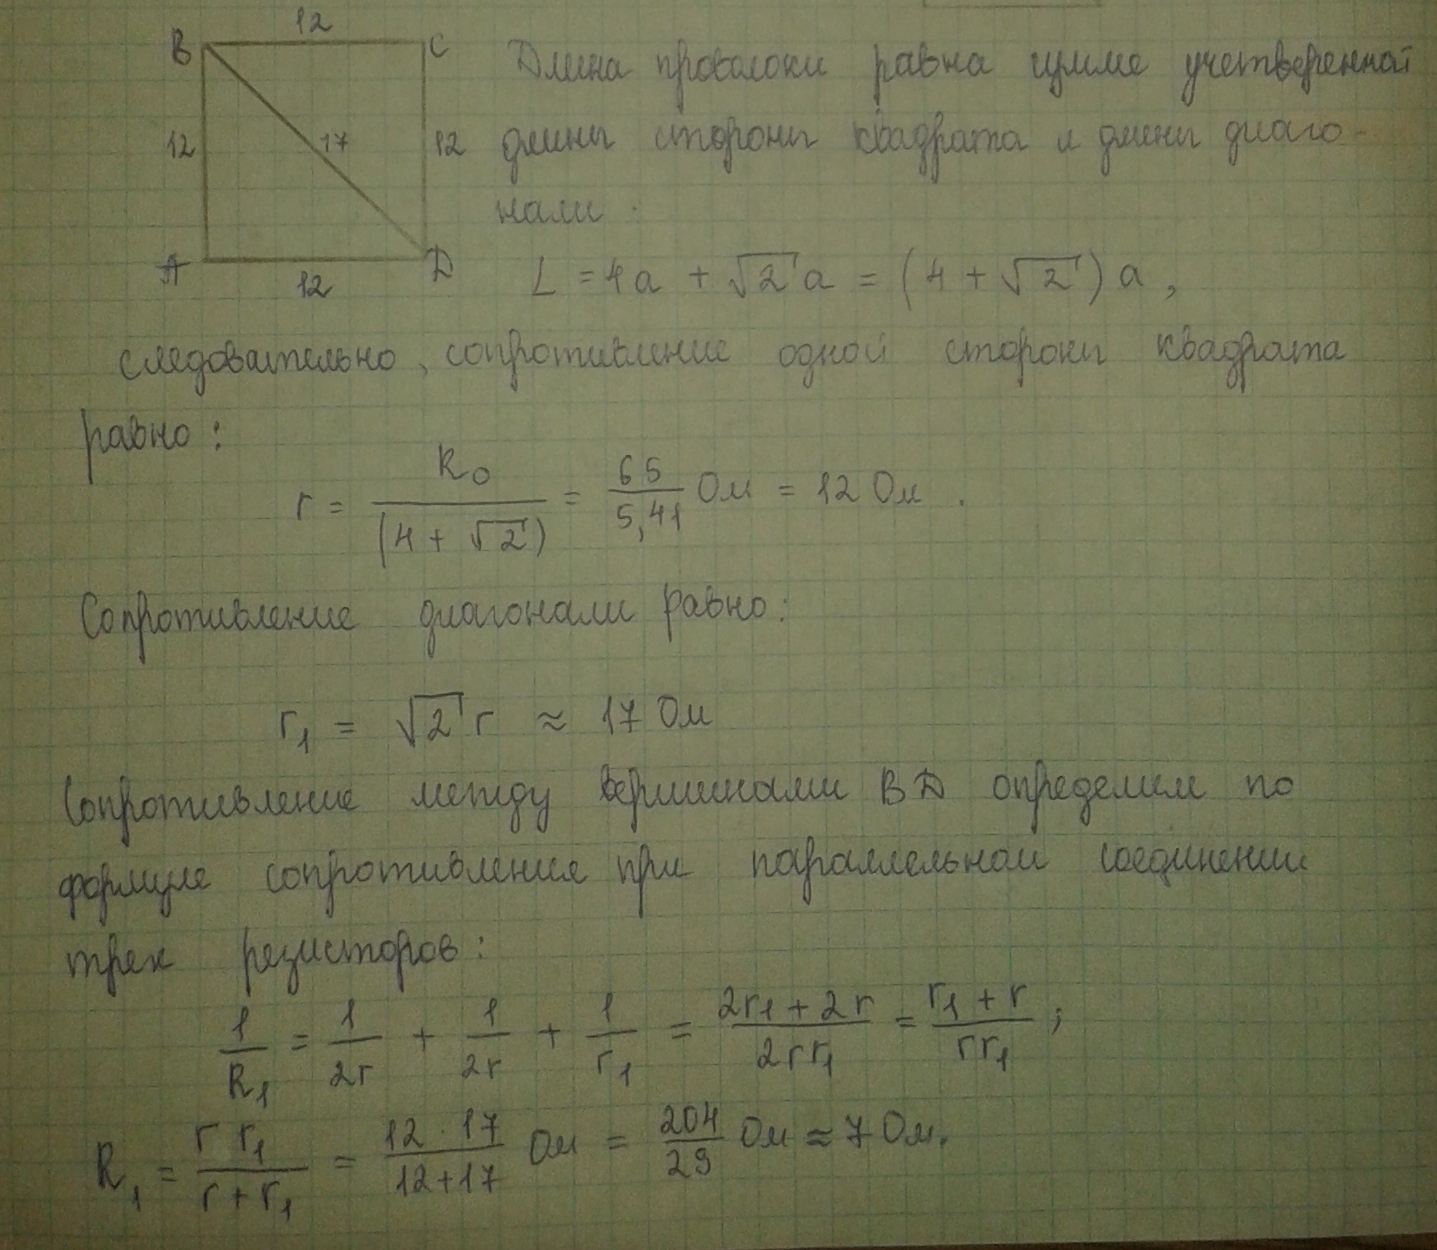 12
B C Длина проволоки равна сумме учетверенной
12 17 12 длины стороны квадрата и длины диаго-
нали :
A 12 D L = 4a + √2 a = (4 + √2) a ,
следовательно, сопротивление одной стороны квадрата
равно :
r = R₀/(4 + √2) = 65/5,41 Ом = 12 Ом .
Сопротивление диагонали равно:
r₁ = √2 r ≈ 17 Ом
Сопротивление между вершинами BD определим по
формуле сопротивления при параллельном соединении
трех резисторов :
1/R₁ = 1/2r + 1/2r + 1/r₁ = (2r₁ + 2r)/(2rr₁) = (r₁ + r)/(rr₁) ;
R₁ = (r r₁)/(r + r₁) = (12 · 17)/(12 + 17) Ом = 204/29 Ом ≈ 7 Ом.